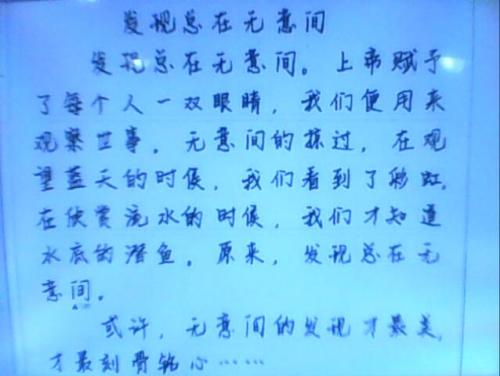 发现总在无意间
发现总在无意间。上帝赋予
了每个人一双眼睛，我们便用来
观察世事。无意间的掠过，在观
望蓝天的时候，我们看到了彩虹，
在欣赏流水的时候，我们才知道
水底的潜鱼。原来，发现总在无
意间。
或许，无意间的发现才最美，
才最刻骨铭心……